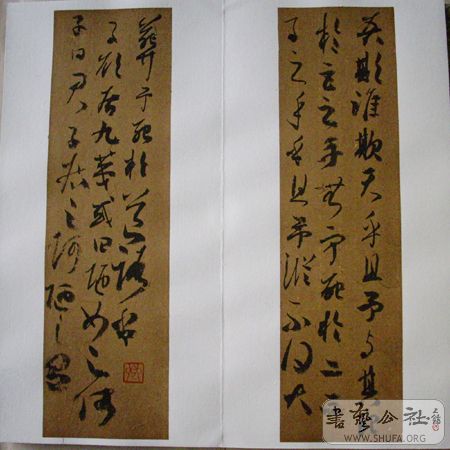 吾欺誰欺天乎且予与其
於臣之手無寧死於二三
子之手乎且予縱不得大
葬予死於道路乎
子欲居九夷或曰陋如之何
子曰君子居之何陋之有
書藝公社
WWW.SHUFA.ORG